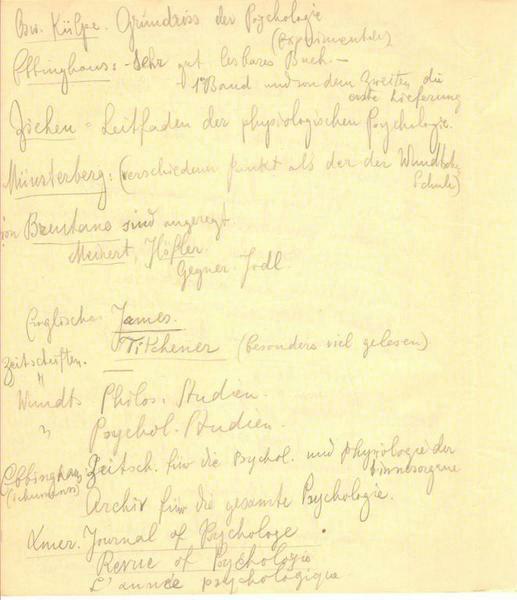 Osw. Külpe. Grundriss der Psychologie
(Experimentale)
Ebbinghaus: - Sehr gut lesbares Buch. -
- 1º Band und von dem Zweiten die
erste Lieferung
Ziehen = Leitfaden der physiologischen Psychologie.
Münsterberg: (verschiedener Punkt als der der Wundtsch.
Schule)
von Brentano sind angeregt.
Meinert, Höfler.
Gegner Jodl
Englische. James.
Titchener (besonders viel gelesen)
Zeitschriften.
"
Wundts Philos. Studien.
" Psychol. Studien.
Ebbinghaus Zeitsch. für die Psychol. und physiologie der
(Schumann) Sinnesorgane
Archiv für die gesamte Psychologie.
Amer. Journal of Psychologe
Revue of Psychologie
L'année psychologique